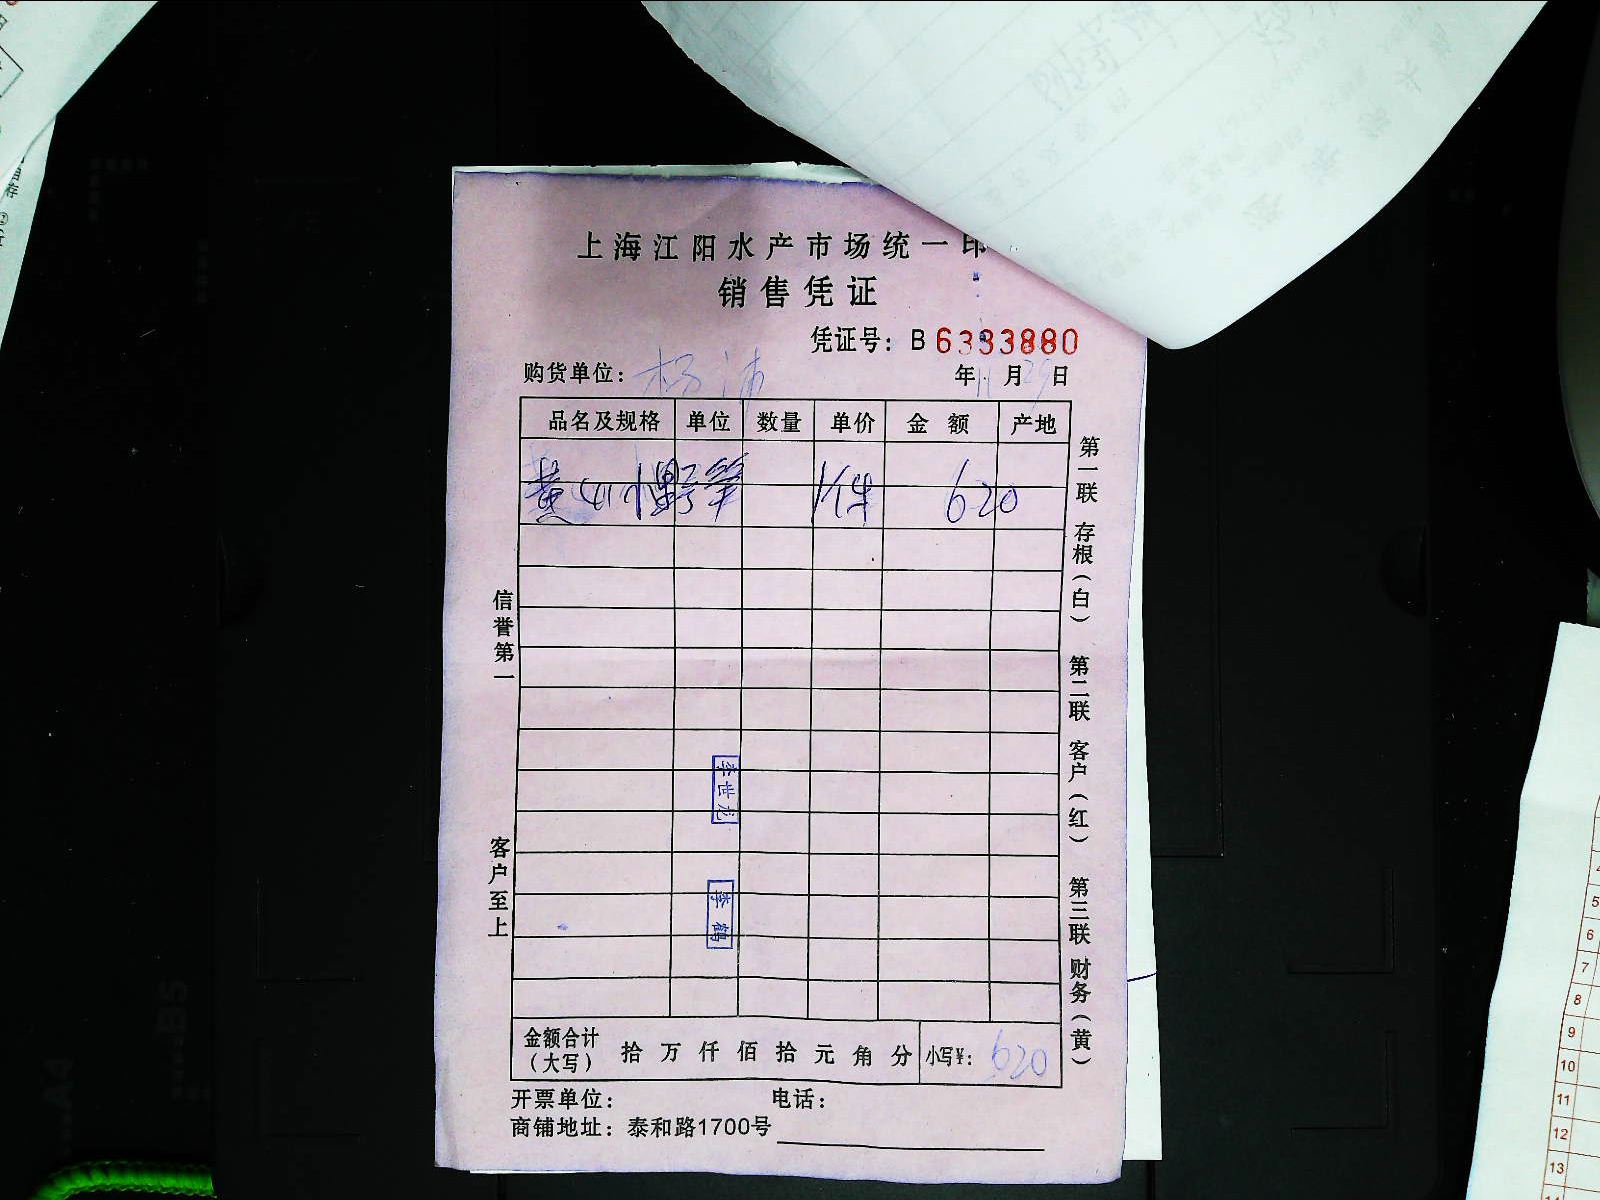 上海江阳水产市场统一印
销售凭证
凭证号：B 6333880
购货单位：杨浦 年 11 月 29 日
品名及规格 单位 数量 单价 金额 产地
1件 620
信誉第一
客户至上
第一联 存根（白）
第二联 客户（红）
第三联 财务（黄）
李世龙
李鹤
金额合计（大写） 拾 万 仟 佰 拾 元 角 分 小写¥：620
开票单位： 电话：
商铺地址：泰和路1700号
5
6
7
8
9
10
11
12
13